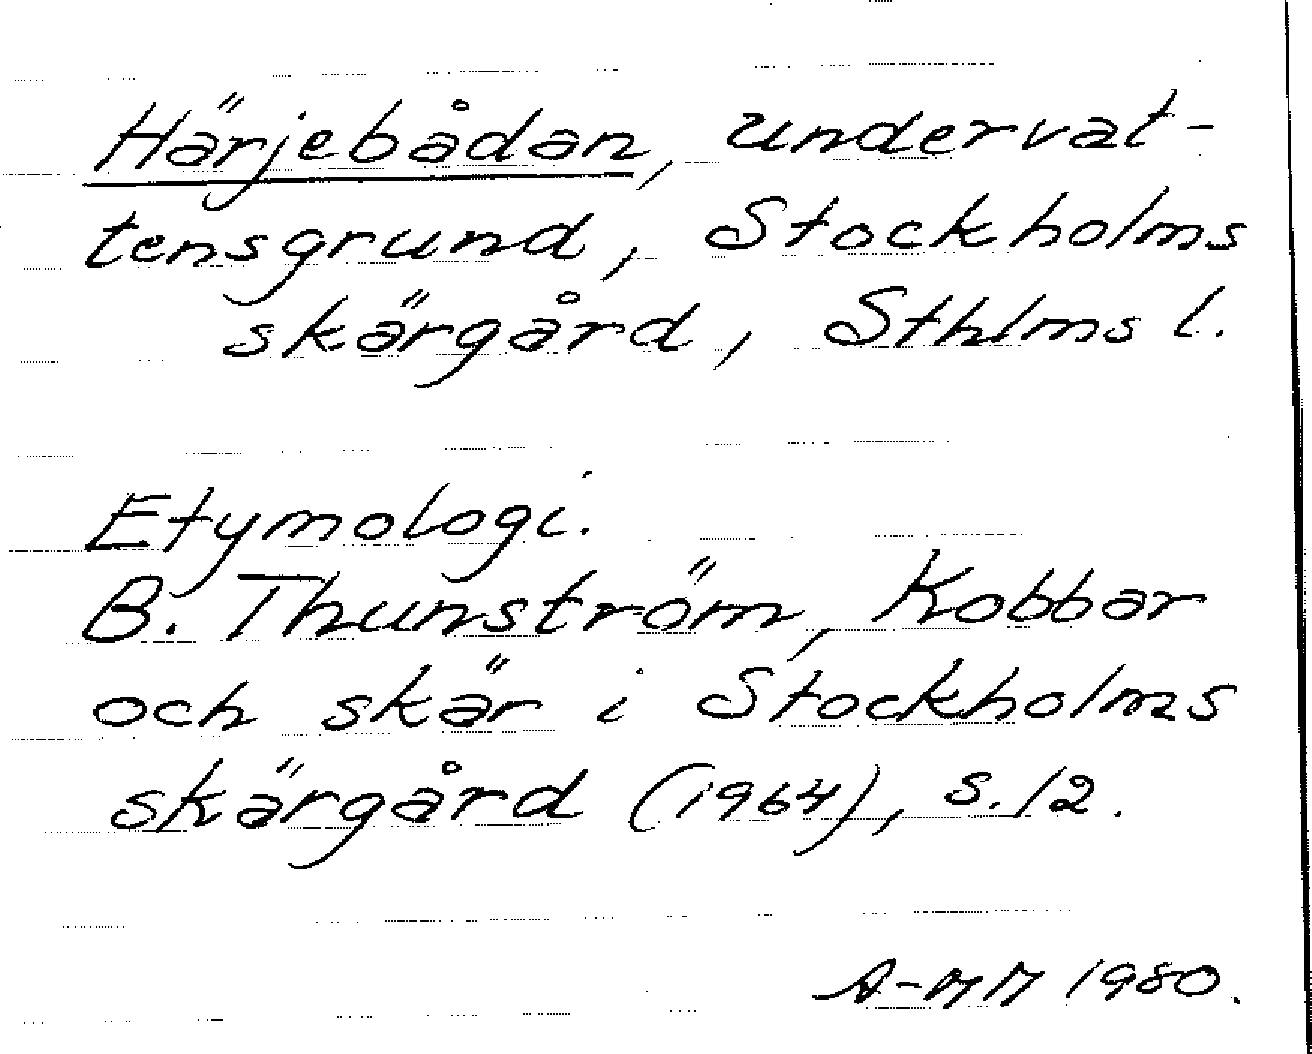 Härjebådan, undervat-
tensgrund, Stockholms
skärgård, Sthlms l.
Etymologi.
B. Thunström, Kobbar
och skär i Stockholms
skärgård (1964), s. 12.
A-MM 1980.